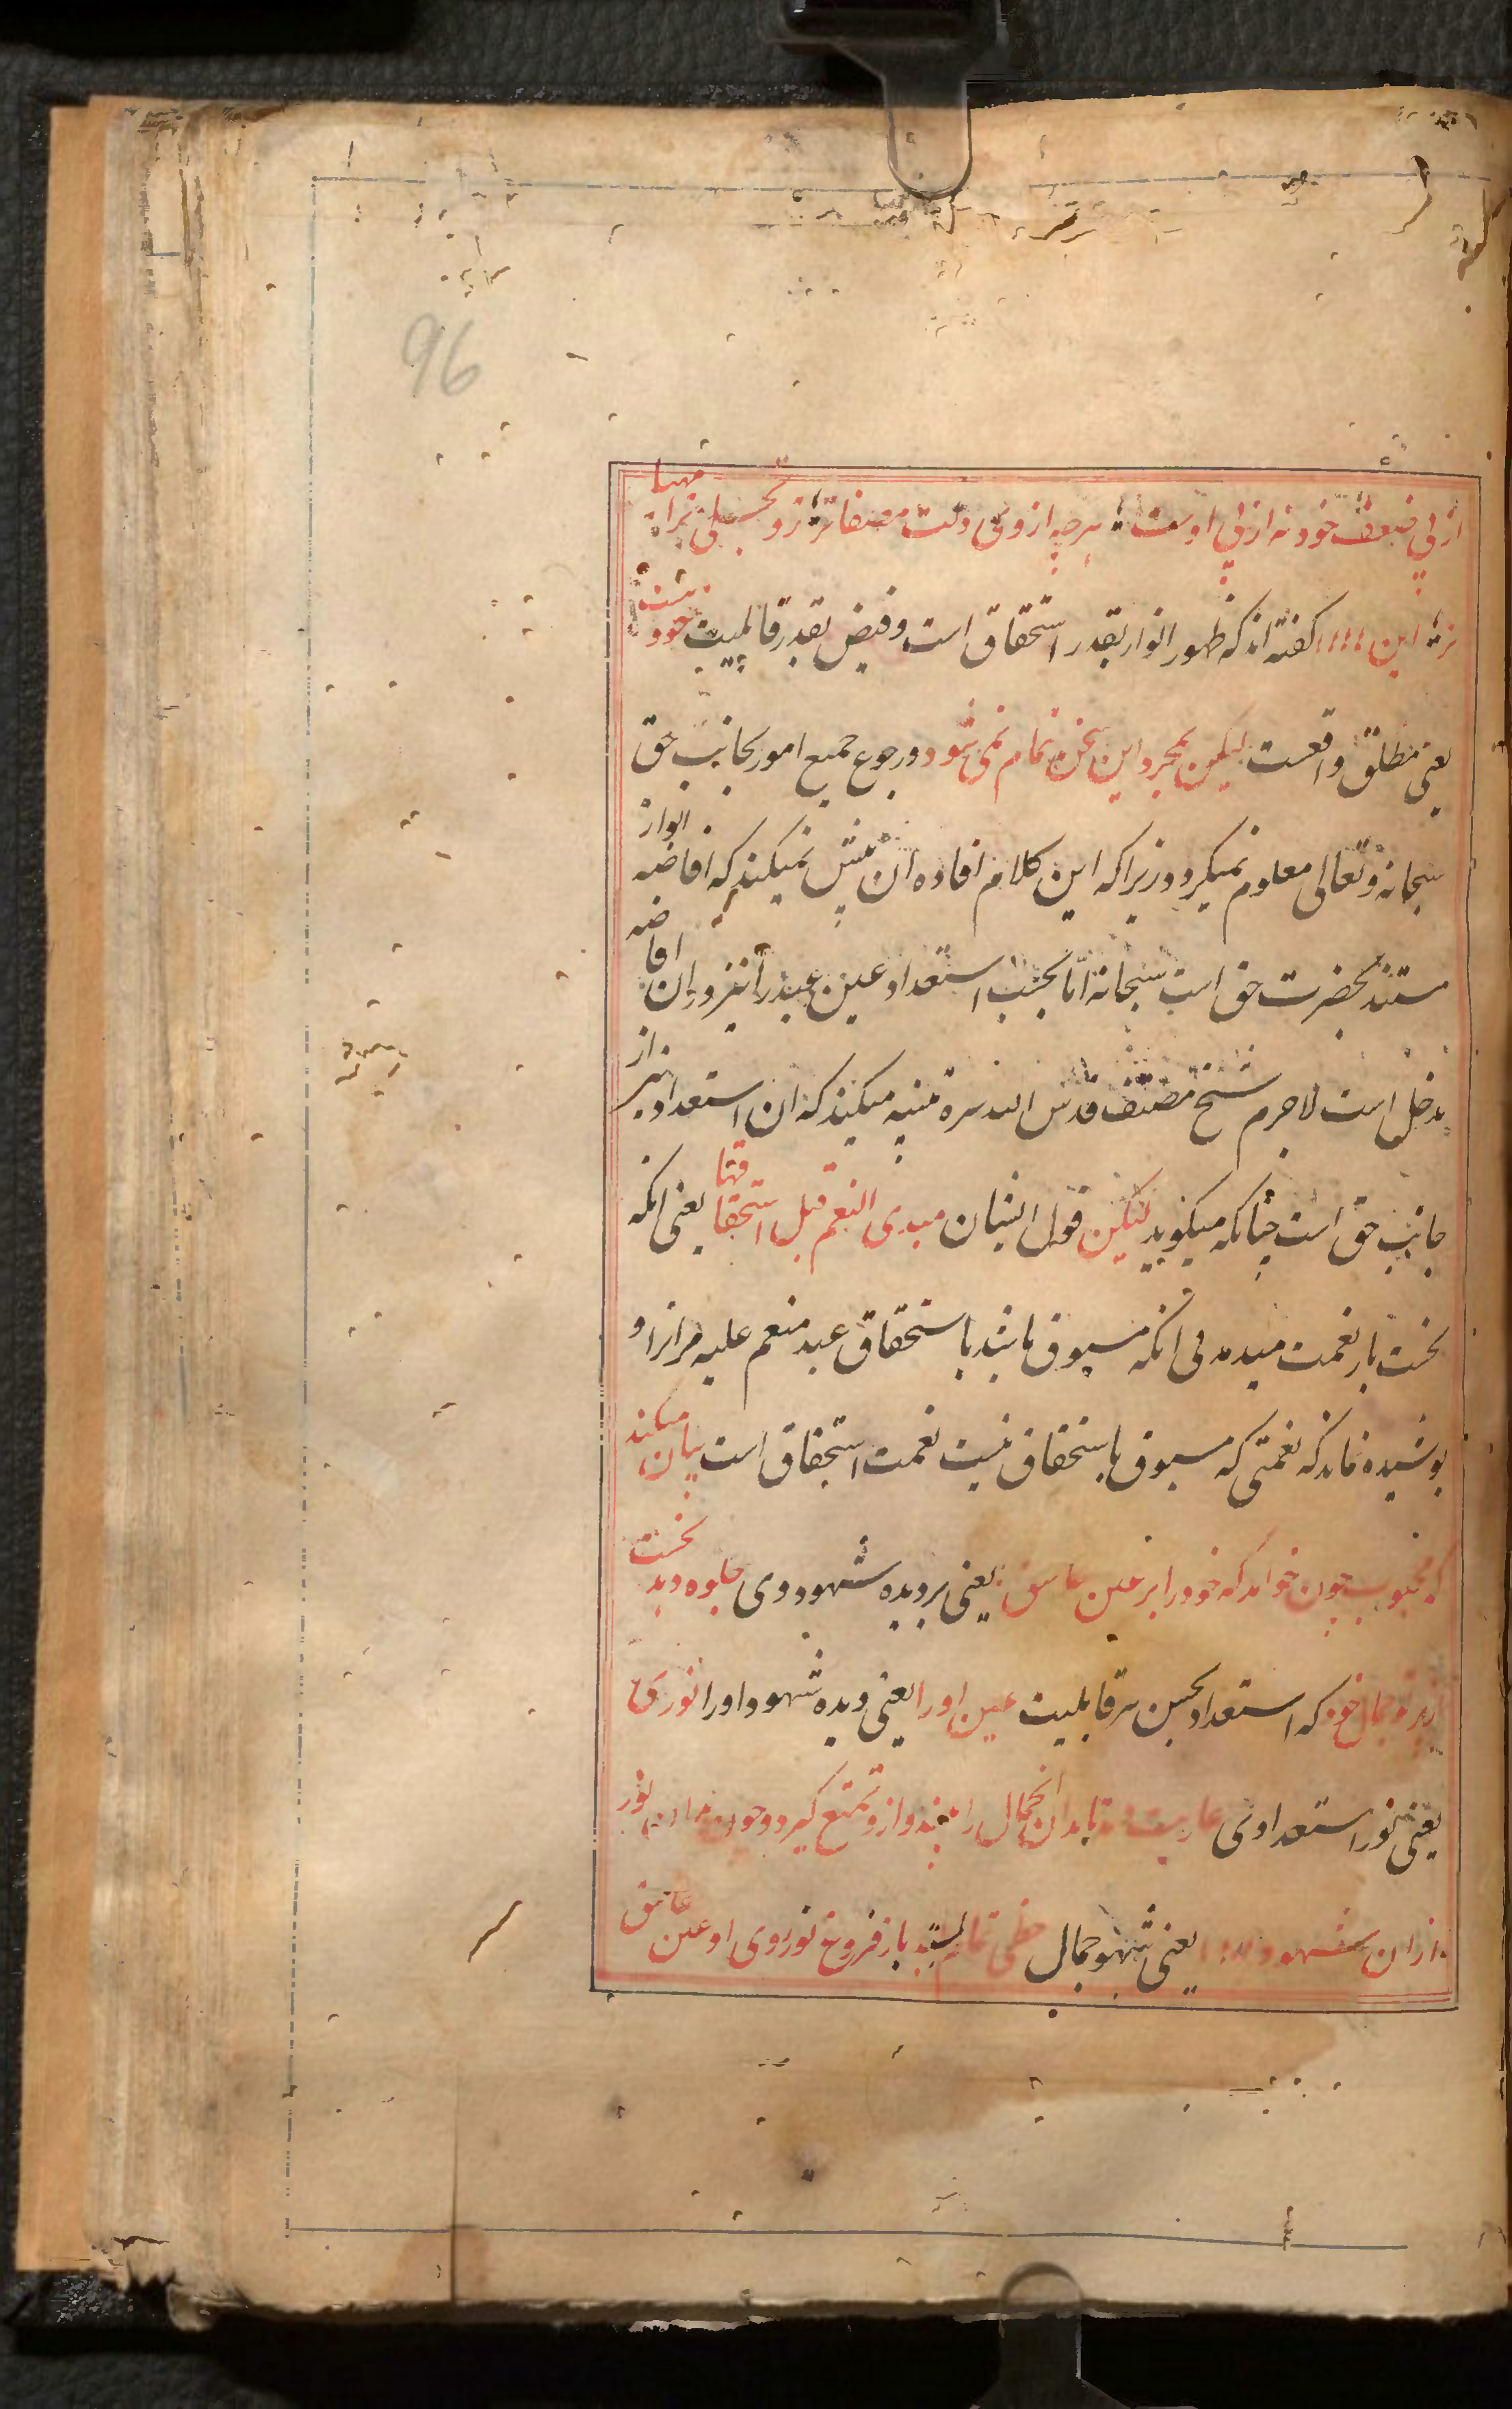 96
از پی ضعف خود نه از پی اوست هرچه از روی دلت مصفاتر زو تجلی ترا مهیا
تر این گفته اند که ظهور انوار بقدر استحقاق است و فیض بقدر قابلیت خود
یعنی مطلق واقعست لیکن بمجرد این سخن تمام نمی شود و رجوع جمیع امور بجانب حق
سبحانه و تعالی معلوم نمیکردد زیرا که این کلام افاده آن بیش نمیکند که افاضه انوار
مستند بحضرت حق است سبحانه اما بحسب استعداد عین عبد را نیز در ان افاضه
مدخل است لاجرم شیخ مصنف قدس الله سره تنبیه میکند که ان استعداد نیز از
جانب حق است چنانکه میکوید لیکن قول ایشان مبدی النعم قبل استحقاقها یعنی انکه
نخست بار نعمت میدهد بی انکه مسبوق باشد باستحقاق عبد منعم علیه مرانرا و
پوشیده نماند که نعمتی که مسبوق باستحقاق نیست نعمت استحقاق است بیان میکند
که محبوب چون خواهد که خود را بر عین عاشق یعنی بر دیده شهود وی جلوه دهد نخست
از پرتو جمال خود که استعداد بخش هر قابلیت عین او را یعنی دیده شهود او را نوری
یعنی نور استعدادی عاریت دهد تا بدان جمال را بیند و از و تمتع کیرد و چون بدان نور
از ان شهود یعنی شهود جمال حظی تمام بستد باز فروغ نور روی او عین عاشق